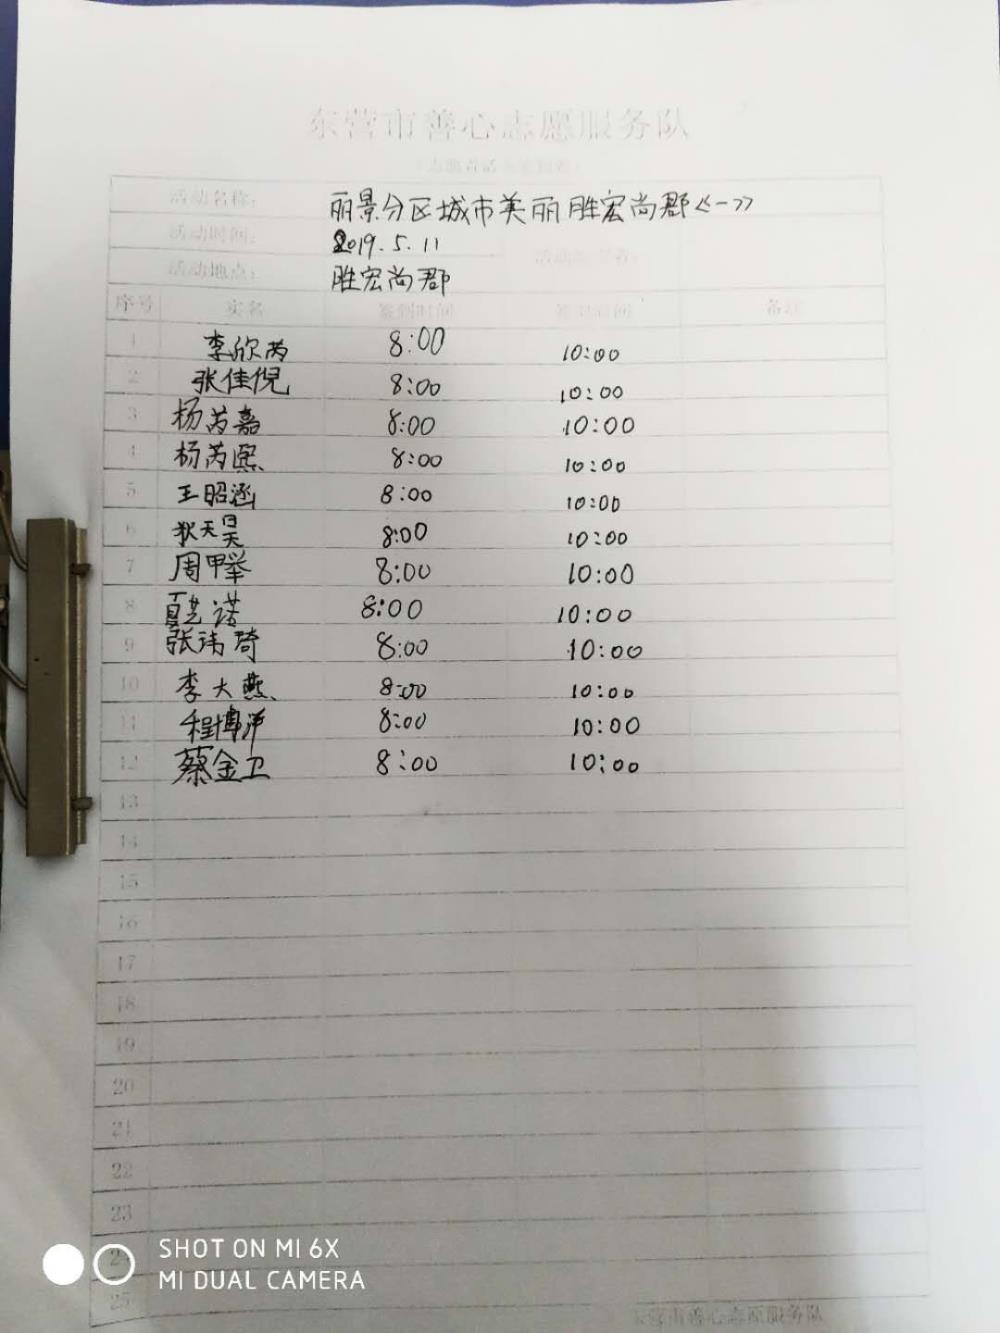 东营市善心志愿服务队
活动名称： 丽景分区城市美丽胜宏尚郡《一》
活动时间： 2019.5.11
活动地点： 胜宏尚郡
序号 实名 签到时间 签退时间 备注
1 李欣芮 8:00 10:00
2 张佳倪 8:00 10:00
3 杨芮嘉 8:00 10:00
4 杨芮熙 8:00 10:00
5 王昭涵 8:00 10:00
6 狄天昊 8:00 10:00
7 周甲举 8:00 10:00
8 夏艺诺 8:00 10:00
9 张玮琦 8:00 10:00
10 李大燕 8:00 10:00
11 程博洋 8:00 10:00
12 蔡金卫 8:00 10:00
13
14
15
16
17
18
19
20
21
22
23
25
东营市善心志愿服务队
SHOT ON MI 6X
MI DUAL CAMERA